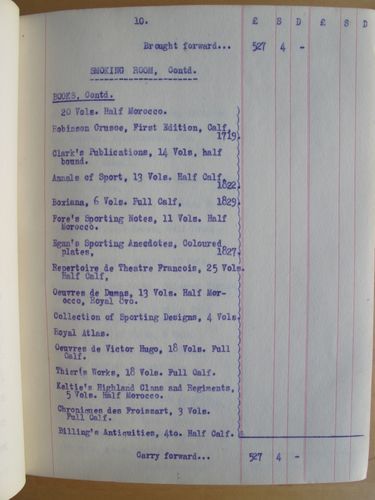 10. £ S D £ S D
Brought forward... 527 4 -
SMOKING ROOM, Contd.
BOOKS, Contd.
20 Vols. Half Morocco.
Robinson Crusoe, First Edition, Calf
1719.
Clark's Publications, 14 Vols, half
bound.
Annals of Sport, 13 Vols. Half Calf,
1822.
Boxiana, 6 Vols. Full Calf, 1829.
Fore's Sporting Notes, 11 Vols. Half
Morocco.
Egan's Sporting Anecdotes, Coloured
plates, 1827.
Repertoire de Theatre Francois, 25 Vols.
Half Calf,
Oeuvres de Dumas, 13 Vols. Half Mor-
occo, Royal 8vo.
Collection of Sporting Designs, 4 Vols.
Royal Atlas.
Oeuvres de Victor Hugo, 18 Vols. Full
Calf.
Thier's Works, 18 Vols. Full Calf.
Keltie's Highland Clans and Regiments,
5 Vols. Half Morocco.
Chroniques des Froissart, 3 Vols.
Full Calf.
Billing's Antiquities, 4to. Half Calf.
Carry forward... 527 4 -